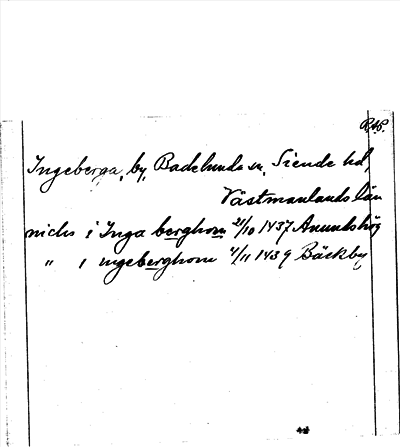 RAP.
Ingeberga, by, Badelunda sn, Siende hd,
Västmanlands län
nichs i Inga berghom 21/10 1437 Anundshög
" i ngeberghom 4/11 1439 Bäckby